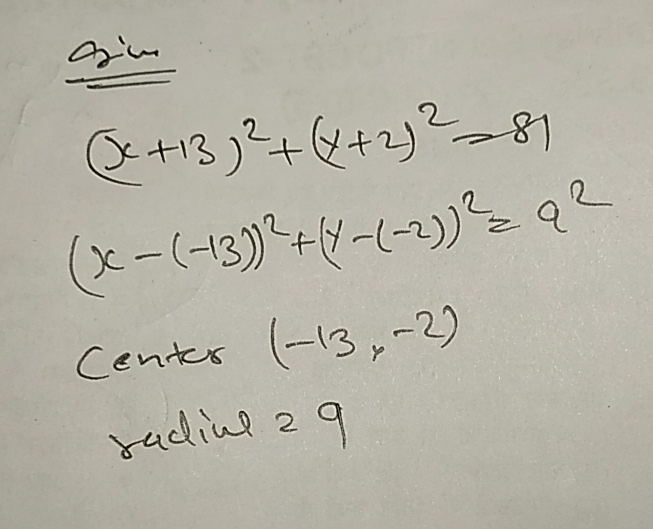 (x+13)²+(y+2)²=81
(x-(-13))²+(y-(-2))²=9²
Center (-13,-2)
radius = 9